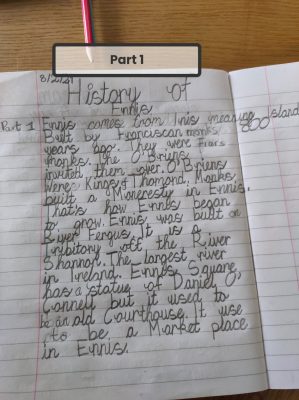 Part 1
8/2/21
History of
Ennis
Part 1 Ennis comes from Inis meaning Island
Built by Franciscan monks 800
years ago. They were Friars
monks. The O'Briens
invited them over. O'Briens
were Kings of Thomond. Monks
built a Moneresty in Ennis.
That's how Ennis began
to grow. Ennis was built on
River Fergus. It is a
tributory off the River
Shannon. The largest river
in Ireland. Ennis Square
has a statue of Daniel O,
Connell but it used to
be an old Courthouse. It use
to be a Market place
in Ennis.